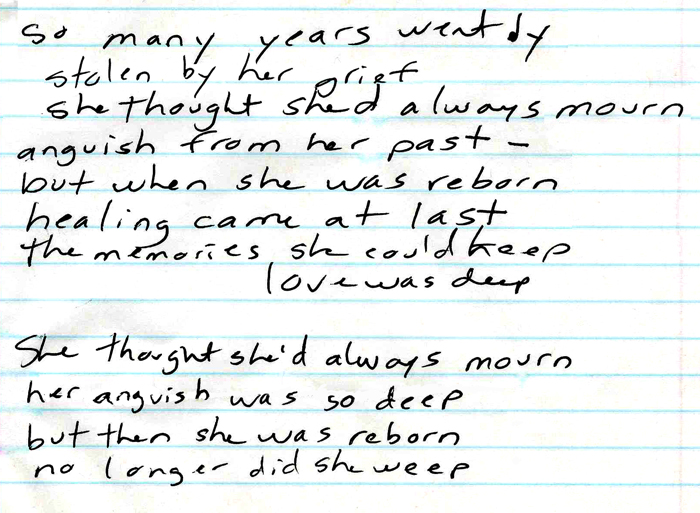 So many years went by
stolen by her grief
she thought she'd always mourn
anguish from her past -
but when she was reborn
healing came at last
the memories she could keep
love was deep
She thought she'd always mourn
her anguish was so deep
but then she was reborn
no longer did she weep